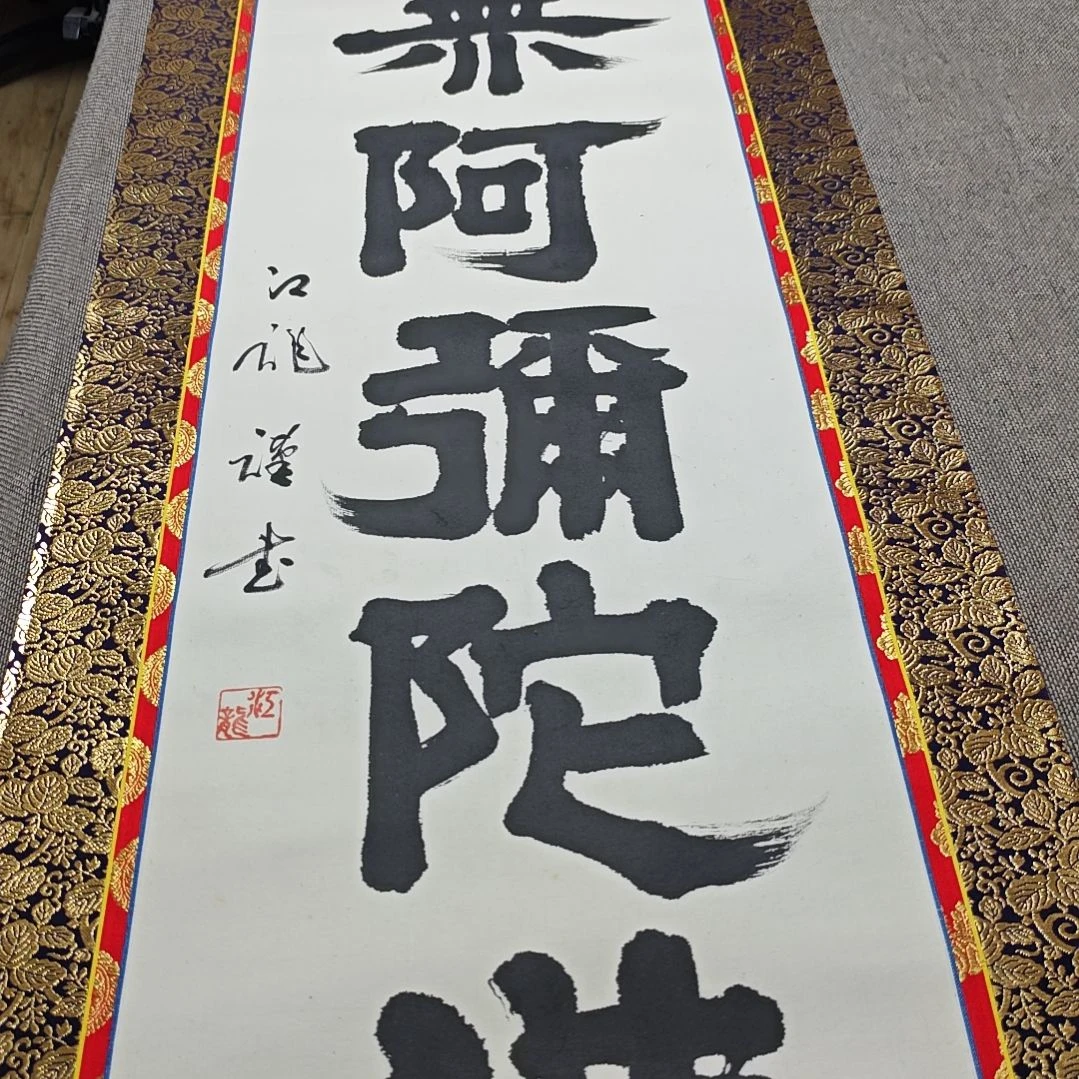 無阿彌陀佛
江龍謹書
江龍